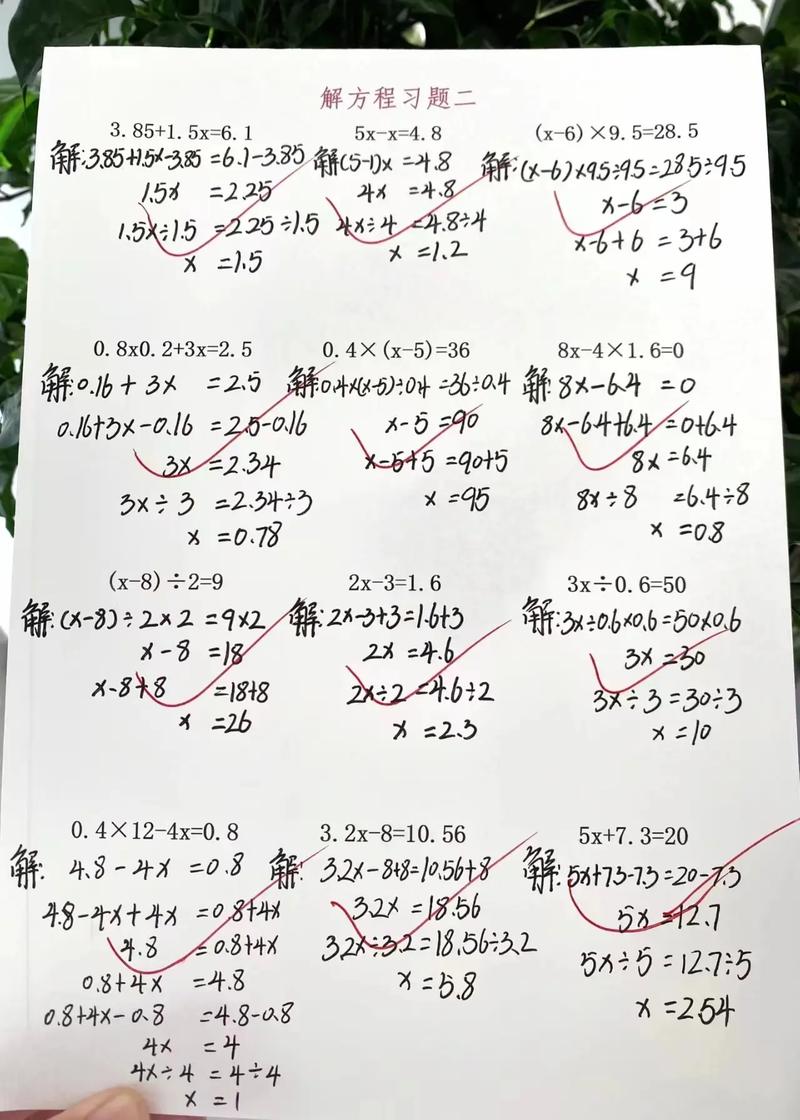 解方程习题二
3.85+1.5x=6.1
解:3.85+1.5x-3.85=6.1-3.85
1.5x=2.25
1.5x÷1.5=2.25÷1.5
x=1.5
5x-x=4.8
解(5-1)x=4.8
4x=4.8
4x÷4=4.8÷4
x=1.2
(x-6)×9.5=28.5
解:(x-6)×9.5÷9.5=28.5÷9.5
x-6=3
x-6+6=3+6
x=9
0.8x0.2+3x=2.5
解:0.16+3x=2.5
0.16+3x-0.16=2.5-0.16
3x=2.34
3x÷3=2.34÷3
x=0.78
0.4×(x-5)=36
解:0.4×(x-5)÷0.4=36÷0.4
x-5=90
x-5+5=90+5
x=95
8x-4×1.6=0
解:8x-6.4=0
8x-6.4+6.4=0+6.4
8x=6.4
8x÷8=6.4÷8
x=0.8
(x-8)÷2=9
解:(x-8)÷2×2=9×2
x-8=18
x-8+8=18+8
x=26
2x-3=1.6
解:2x-3+3=1.6+3
2x=4.6
2x÷2=4.6÷2
x=2.3
3x÷0.6=50
解:3x÷0.6×0.6=50×0.6
3x=30
3x÷3=30÷3
x=10
0.4×12-4x=0.8
解:4.8-4x=0.8
4.8-4x+4x=0.8+4x
4.8=0.8+4x
0.8+4x=4.8
0.8+4x-0.8=4.8-0.8
4x=4
4x÷4=4÷4
x=1
3.2x-8=10.56
解:3.2x-8+8=10.56+8
3.2x=18.56
3.2x÷3.2=18.56÷3.2
x=5.8
5x+7.3=20
解:5x+7.3-7.3=20-7.3
5x=12.7
5x÷5=12.7÷5
x=2.54